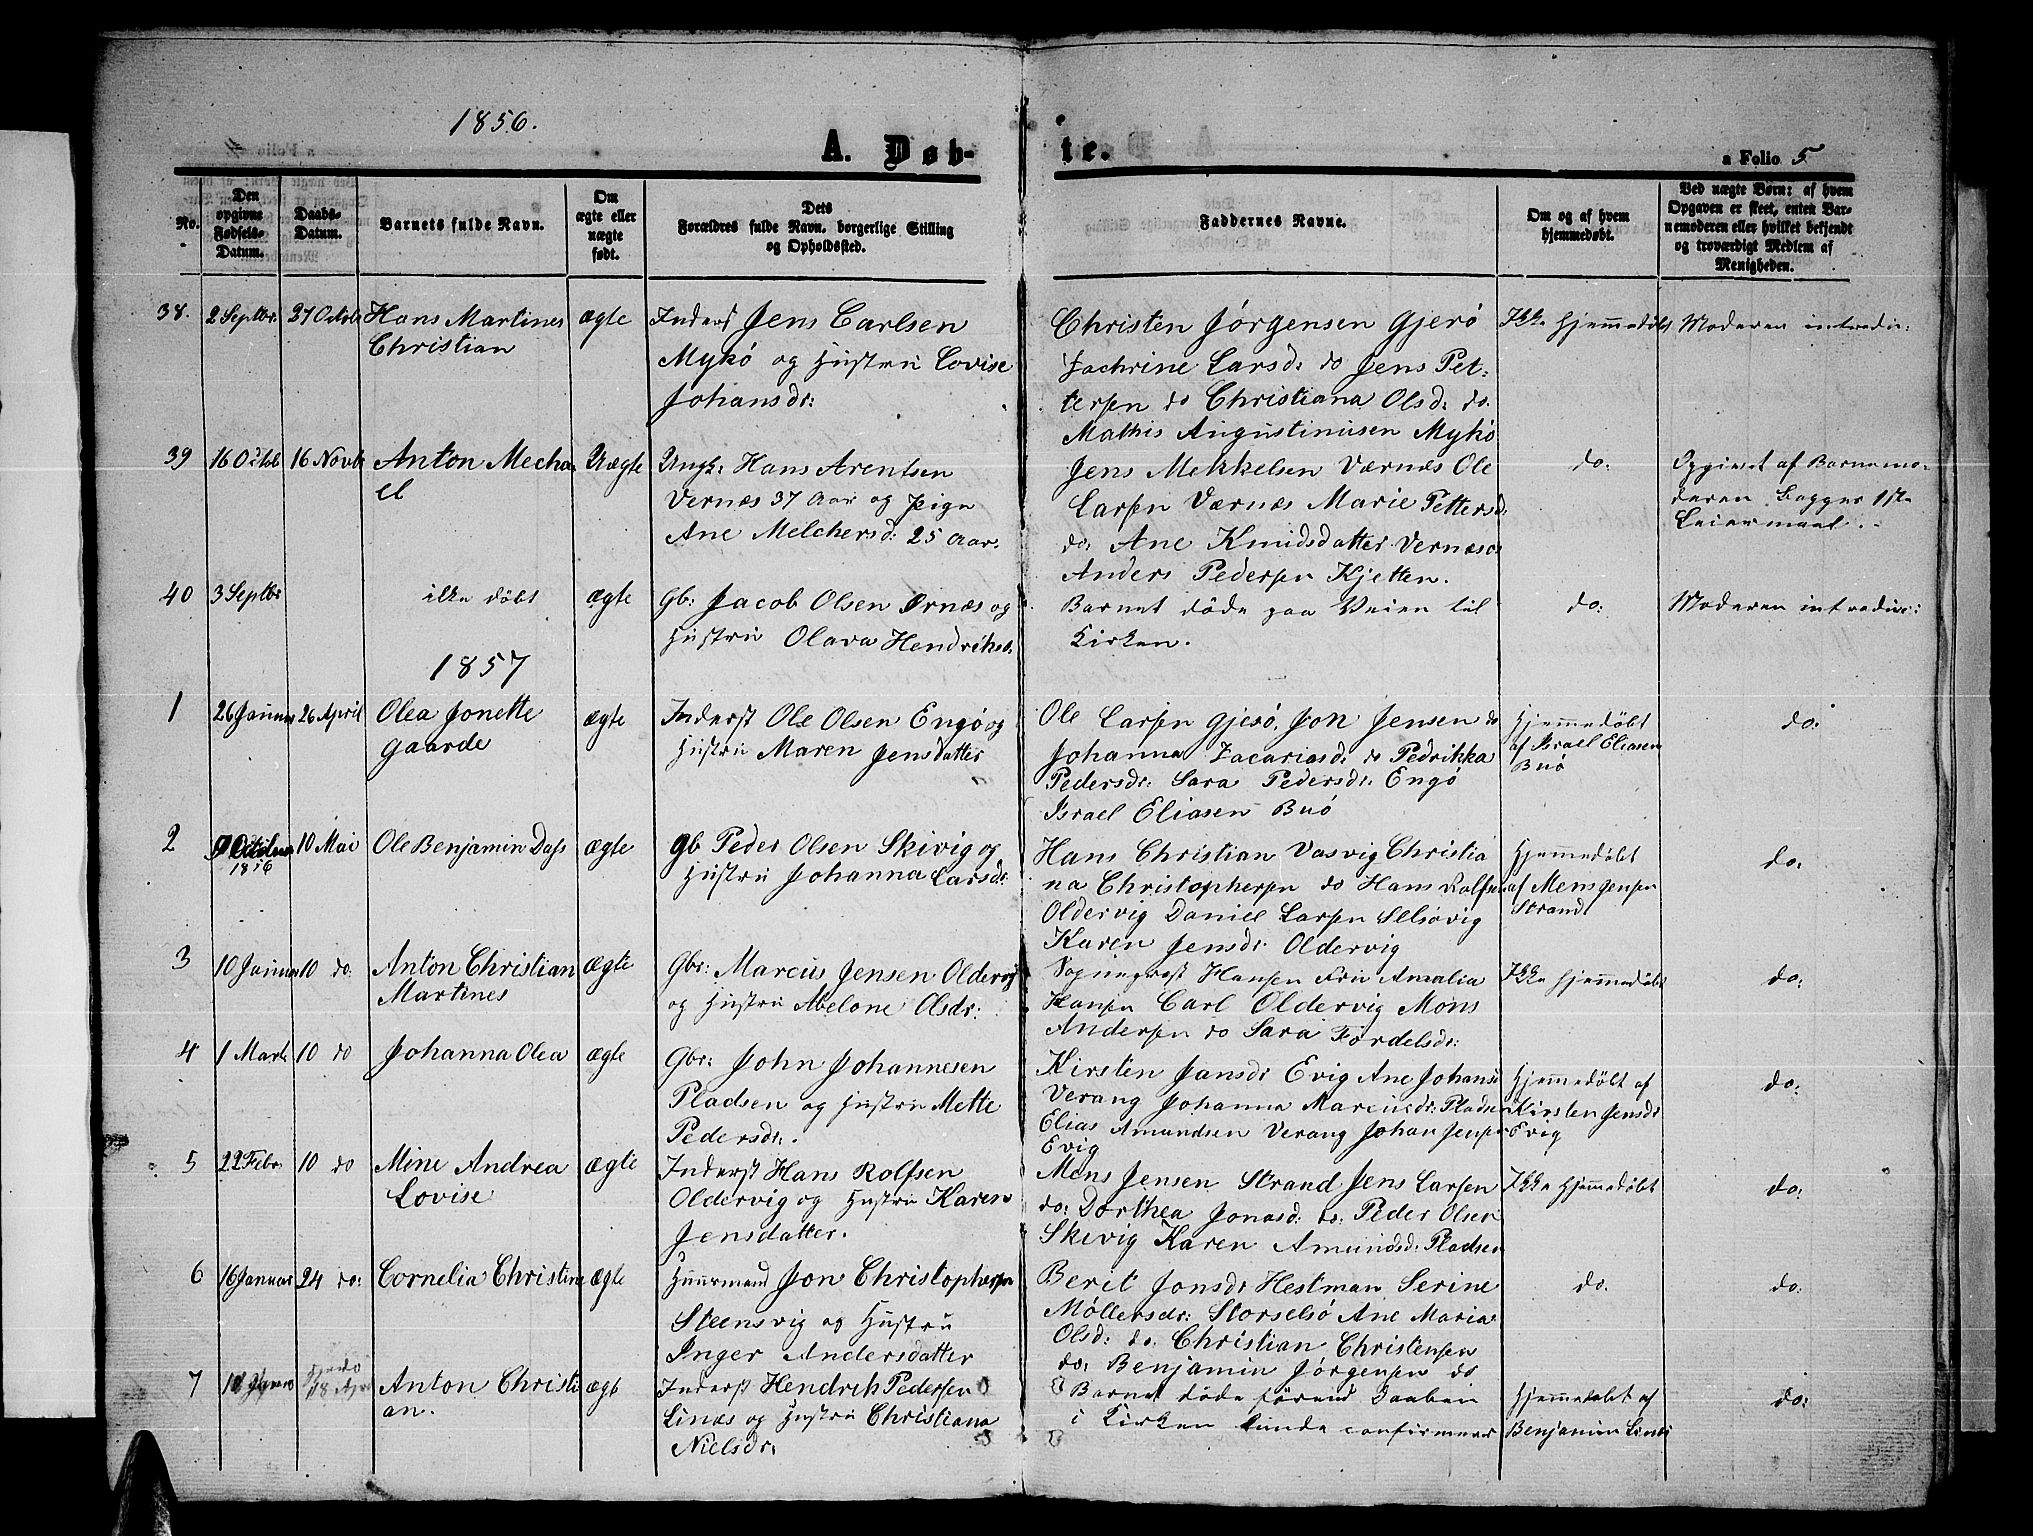 1856.
A. Døb-
te.
a Folio 5
No.
Den opgivne Fødsels-Datum.
Daabs-Datum.
Barnets fulde Navn.
Om ægte eller uægte født.
Dets Forældres fulde Navn, borgerlige Stilling og Opholdssted.
Faddernes Navne.
Om og af hvem hjemmedøbt.
Ved uægte Børn: af hvem Opgaven er skeet, enten Barnemoderen eller hvilket bekjendt og troværdigt Medlem af Menigheden.
38. 2 Septbr. 27 Octobr Hans Martines
Christian
ægte
Inderst Jens Carlsen
Mykö og Hustru Lovise
Johansdr:
Christen Jörgensen Gjerö
Zachrine Larsd: do Jens Pet-
tersen do Christiana Olsd: do.
Mathis Augustinusen Mykö
Ikke hjemmedöbt
Moderen introdu:
39 16 Octob 16 Novb Anton Mecha
el
Uægte
Ungk: Hans Arentsen
Vernæs 37 Aar og Pige
Ane Melchersd: 25 Aar.
Jens Mekkelsen Værnæs Ole
Larsen Værnæs Marie Pettersd:
do: Ane Knudsdatter Vernæs
Anders Pedersen Kjetten.
do:
Opgivet af Barnemo-
deren Begges 1ste
Leiermaal.
40 3 Septbr ikke döbt ægte
Gb: Jacob Olsen Ørnæs og
Hustru Olava Hendriksd.
Barnet döde paa Veien til
Kirken.
do:
Moderen introduc:
1857
1 26 Januar 26 April Olea Jonette
Gaarde
ægte
Inderst Ole Olsen Engö og
Hustru Maren Jensdatter
Ole Larsen Gjesö, Jon Jensen do
Johanna Zacariasd: do Pedrikka
Pedersdr: Sara Pedersdr: Engö
Israel Eliasen Buö
Hjemmedöbt
af Israel Eliasen
Buö
do:
2 10 Mai Ole Benjamin Dass ægte
1856
Gb Peder Olsen Skivig og
Hustru Johanna Larsdr:
Hans Christian Vasvig Christia
na Christophersen do Hans Rolfsen
Oldervig Daniel Larsen Selsövig
Karen Jensdr: Oldervig
Hjemmedöbt
af Mens Jensen
Strand
do:
3 10 Januar 10 do: Anton Christian
Martines
ægte
Gbr: Marcus Jensen Oldervig
og Hustru Abelone Olsdr:
Sogneprest Hansen Fru Amalia
Hansen Carl Oldervig Mons
Andersen do Sara Fördelsdr:
Ikke hjemmedöbt
do:
4 1 Marts 10 do Johanna Olea ægte
Gbr: John Johannesen
Pladsen og Hustru Mette
Pedersdr:.
Kirsten Jansdr Evig Ane Johansd
Verang Johanna Marcusdr: Pladsen
Elias Amundsen Verang Johan Jensen
Evig
Hjemmedöbt af
Kirsten Jensdr
Evig
do:
5 22 Febr. 10 do Mine Andrea
Lovise
ægte
Inderst Hans Rolfsen
Oldervig og Hustru Karen
Jensdatter.
Mens Jensen Strand Jens Larsen
do: Dorthea Jonasd: do: Peder Olsen
Skivig Karen Amundsd: Pladsen
Ikke hjemmedöbt
do:
6 16 Januar 24 do: Cornelia Christine ægte
Huusmand Jon Christophersen
Steensvig og Hustru
Inger Andersdatter
Berit Jonsdr Hestman Serine
Møllersdr: Storselsö Ane Maria
Olsd: do: Christian Christensen
do: Benjamin Jörgensen do
do.
do:
7 Anton Christi
an.
ægte
Inderst Hendrik Pedersen
Linæs og Hustru Christiana
Nielsdr:
Barnet döde förend Daaben
i Kirken kunde confirmeres
Hjemmedöbt af
Benjamin Linæs
do: